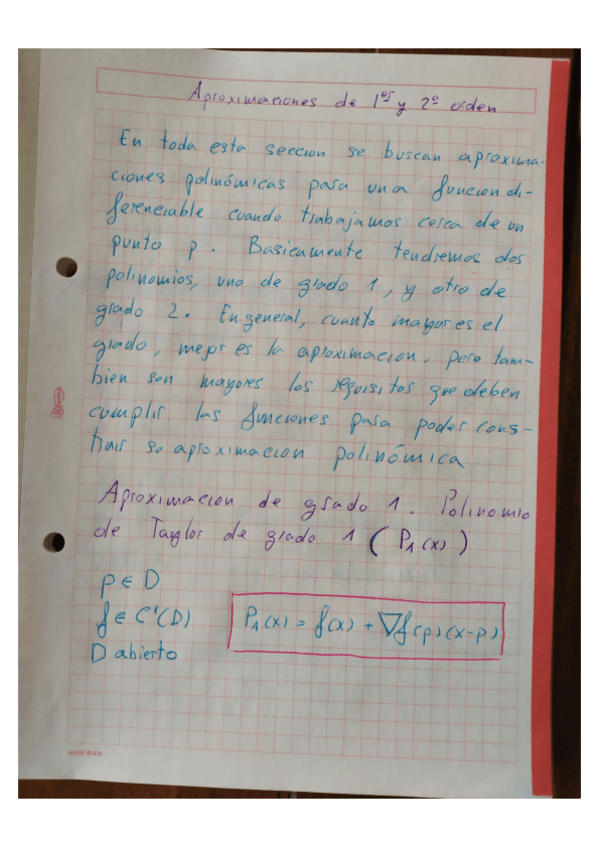 Aproximaciones de 1os y 2º orden
En toda esta seccion se buscan aproxima-
ciones polinómicas para una funcion di-
ferenciable cuando trabajamos cerca de un
punto p. Basicamente tendremos dos
polinomios, uno de grado 1, y otro de
grado 2. En general, cuanto mayor es el
grado, mejor es la aproximacion, pero tam-
bien son mayores los requisitos que deben
cumplir las funciones para poder cons-
truir su aproximacion polinómica
Aproximacion de grado 1. Polinomio
de Taylor de grado 1 (P₁(x))
p ∈ D
f ∈ C¹(D)
D abierto
P₁(x) = f(x) + ∇f(p)(x-p)